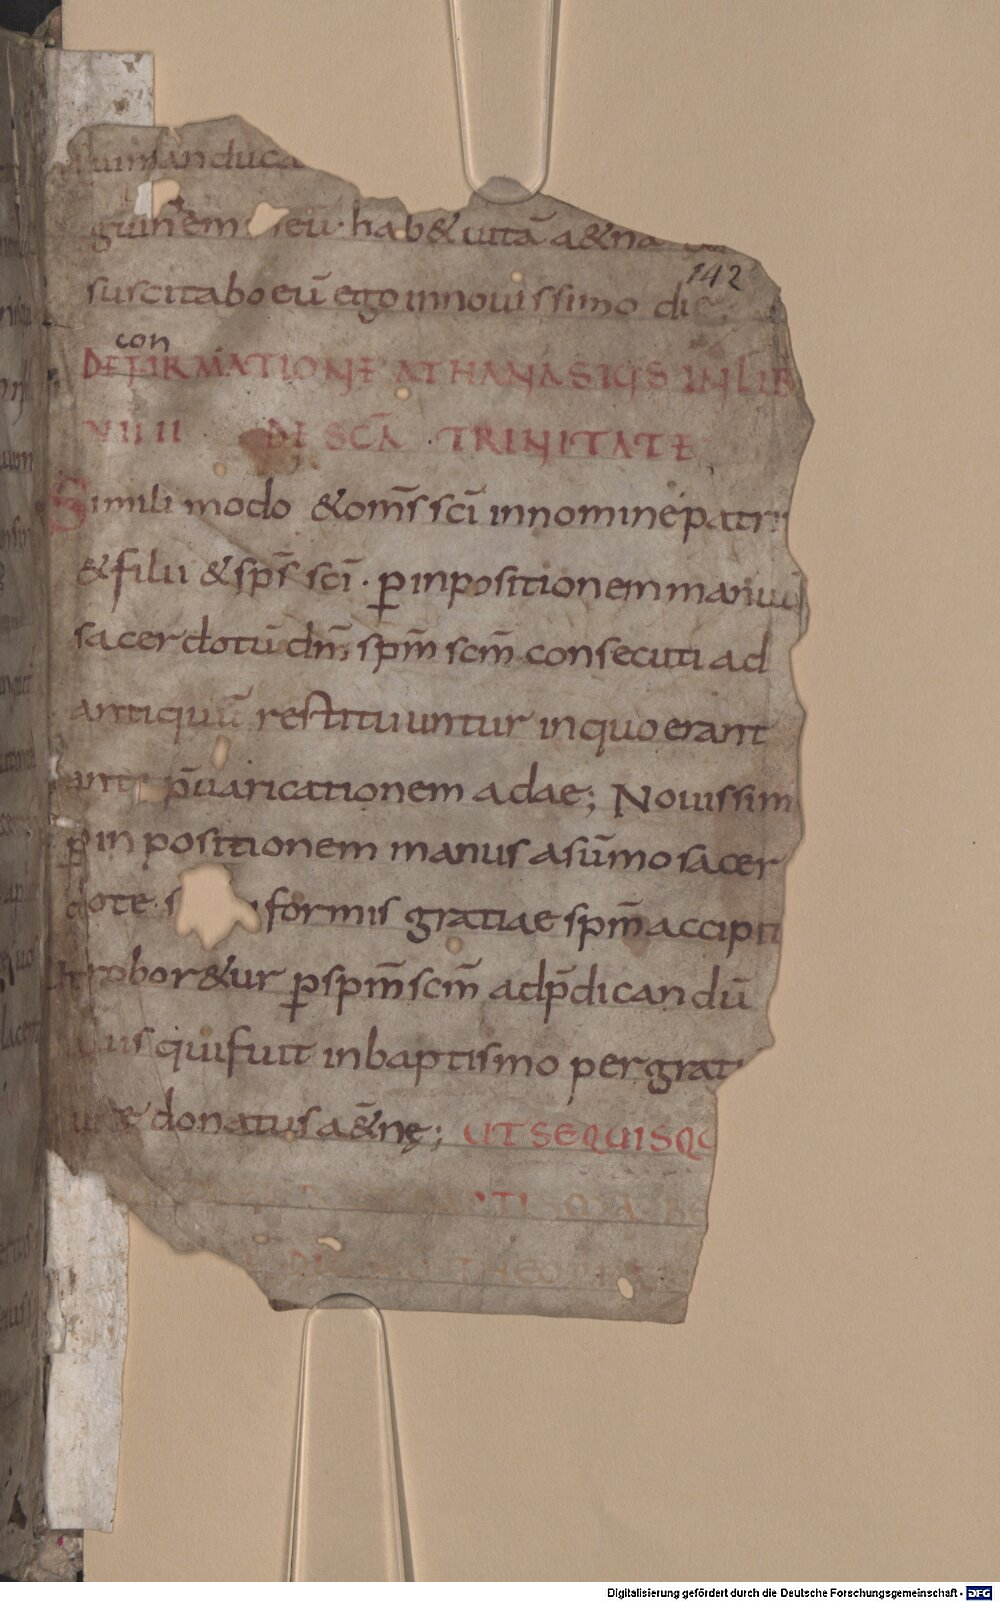 manduca
guinem meū· hab& uitā a&erna
suscitabo eū ego innouissimo die
142
con
DE FIRMATIONE ATHANASIUS IN LIB
VIIII DE SCĀ · TRINITATE
Simili modo & om̄s sc̄i innomine patris
& filii & sp̄s sc̄i · p̲ inpositionem manuū
sacerdotū dn̄i sp̄m sc̄m consecuti ad
antiquū restituuntur inquo erant
ante p̄uaricationem adae; Nouissim
p̲ inpositionem manus asūmo sacer
dote · formis gratiae sp̄m accipit
robor&ur p̲ sp̄m sc̄m adp̄dicandū
qui fuit inbaptismo per grat
donatus a&̄nę; UT SEQUISQ
THEO
Digitalisierung gefördert durch die Deutsche Forschungsgemeinschaft - DFG